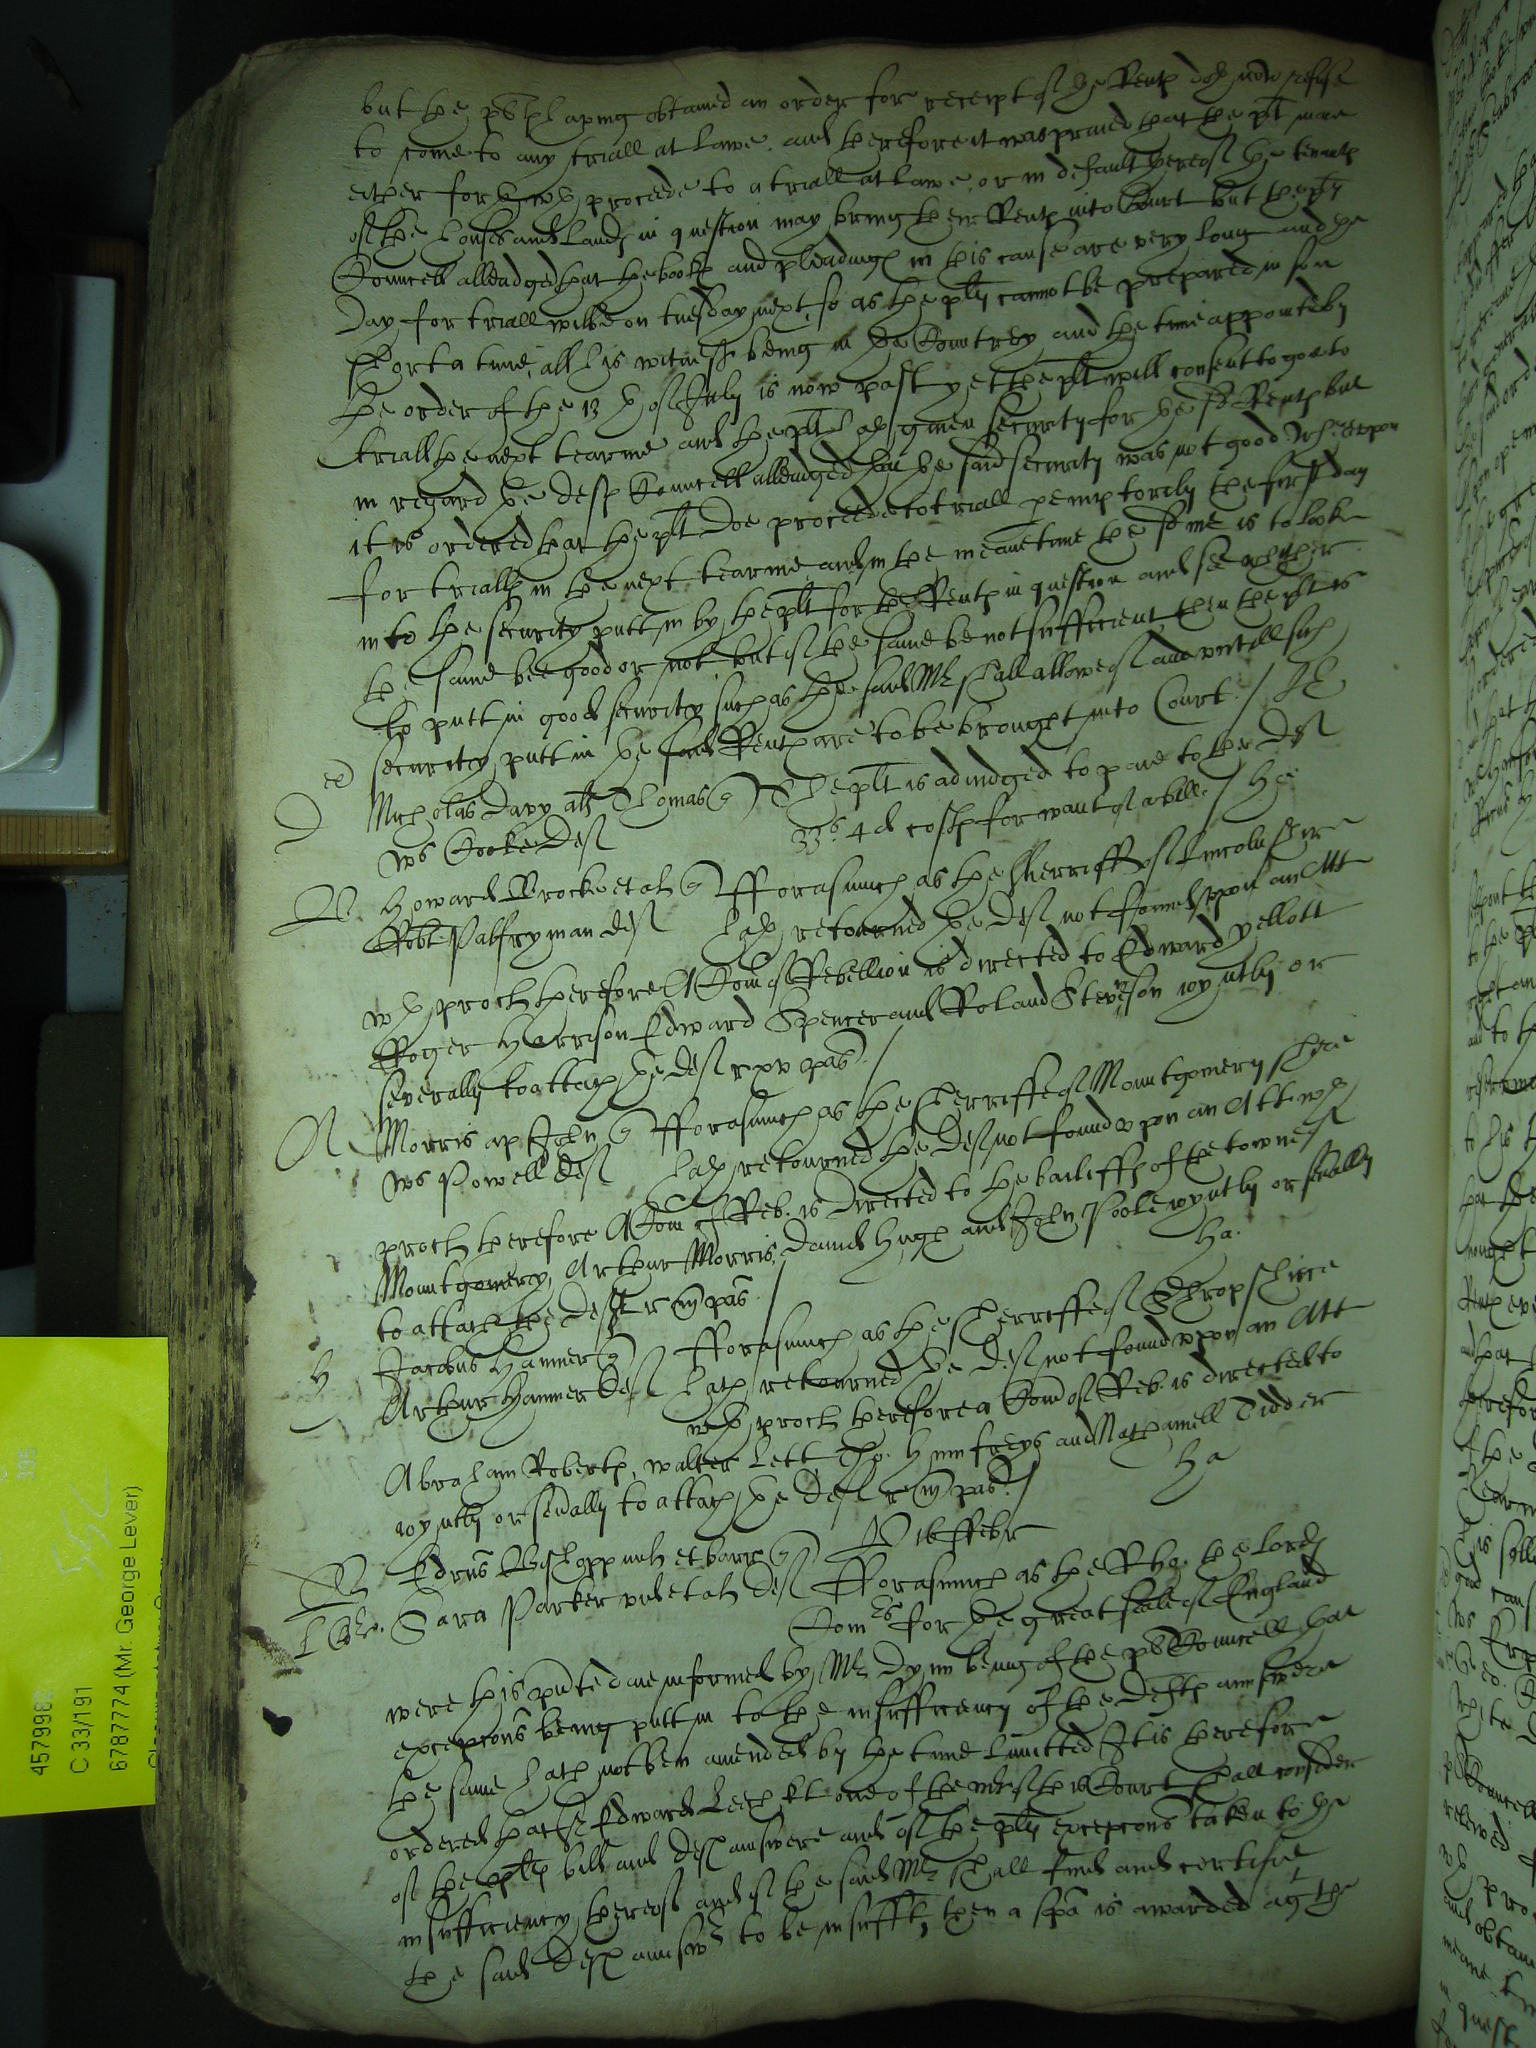 but the pl haveing obtained an order for receipt of the Rents doth now refuse
to come to any triall at lawe. and therefore it was praied that the plt maie
either forthwth proceede to a triall at lawe, or in default thereof the tenants
of the houses and lands in question may bring their Rents into Court but the plts
Councell alleadged that the books and pleadings in this cause are very long and the
day for triall wilbe on tuesday next, so as the plts cannot be prepared in soe
short a time, all his witness being in the Countrey and the time appointed by
the order of the 13 th of July is now past yet the plt will consent to goe to
triall the next tearme and the plt hath given security for the sd Rents but
in regard the defts Councell alleadged that the said security was not good. Whereupon
it is ordered that the plt doe proceede to triall peremptorily the first day
for trialls in the next tearme, and in the meane time the sd mr is to looke
into the security putt in by the plt for the Rents in question and see whether
the same bee good or not, but if the same be not sufficient, then the plt is
to putt in good security such as the said Mr shall allowe of and untill such
security putt in the said Rents are to be brought into Court. /
D Nicholas Davy als Thomas The plt is adiudged to paie to the def
Ws Cooke Def 33s 4d costs for want of a bill. /
B. Howard Brock et al Fforasmuch as the Sherriffe of Lincolnshire
Robt Palfryman def hath retourned the def not found upon an Att
wth procl therefore A Com of Rebellion is directed to Edward Yellott
Roger Harrison Edward Spencer and Roland Stevenson ioyntly or
severally to attach the def r xv pas. /
A Morris ap John Fforasmuch as the Sherriffe of Mountgomery shire
Ws Powell def hath retourned the def not found upon an Att wth
procl therefore A Com of Reb. is directed to the bailiffs of the towne of
Mountgomery, Arthur Morris, David Hughs and John Poole ioyntly or serally
to attach the def r pas. / ha.
H Jacobus Hanmer Fforasmuch as the Sherriffe of Shropshire
Arthur Hanmer def hath retourned the def not found upon an Att
wth procl therefore a Com of Reb. is directed to
Abraham Roberts, Walter Lett Tho. Humfreys and Nathaniell Tidder
ioyntly or serally to attach the def r pas. / ha
B 16 Ffebr
Edrus Bishopp mil et barr Fforasmuch as the R ho. the Lords
Sara Parker vid et al def Comrs for the great seale of England
were this pnte daie informed by Mr Dynn being of the pls Councell that
excepcons being putt in to the insufficiency of the defts aunswere
the same hath not ben amended by the time limitted It is therefore
ordered that Sr Edward Leech kt one of the mrs of this Court shall consider
of the plts bill and defs answere and of the plts excepcons taken to the
insufficiency thereof and if the said Mr shall find and certifie
the said defs aunswr to be insufft, then a spa is awarded agt the
457998
C 33/191
67877774 (Mr. George Lever)